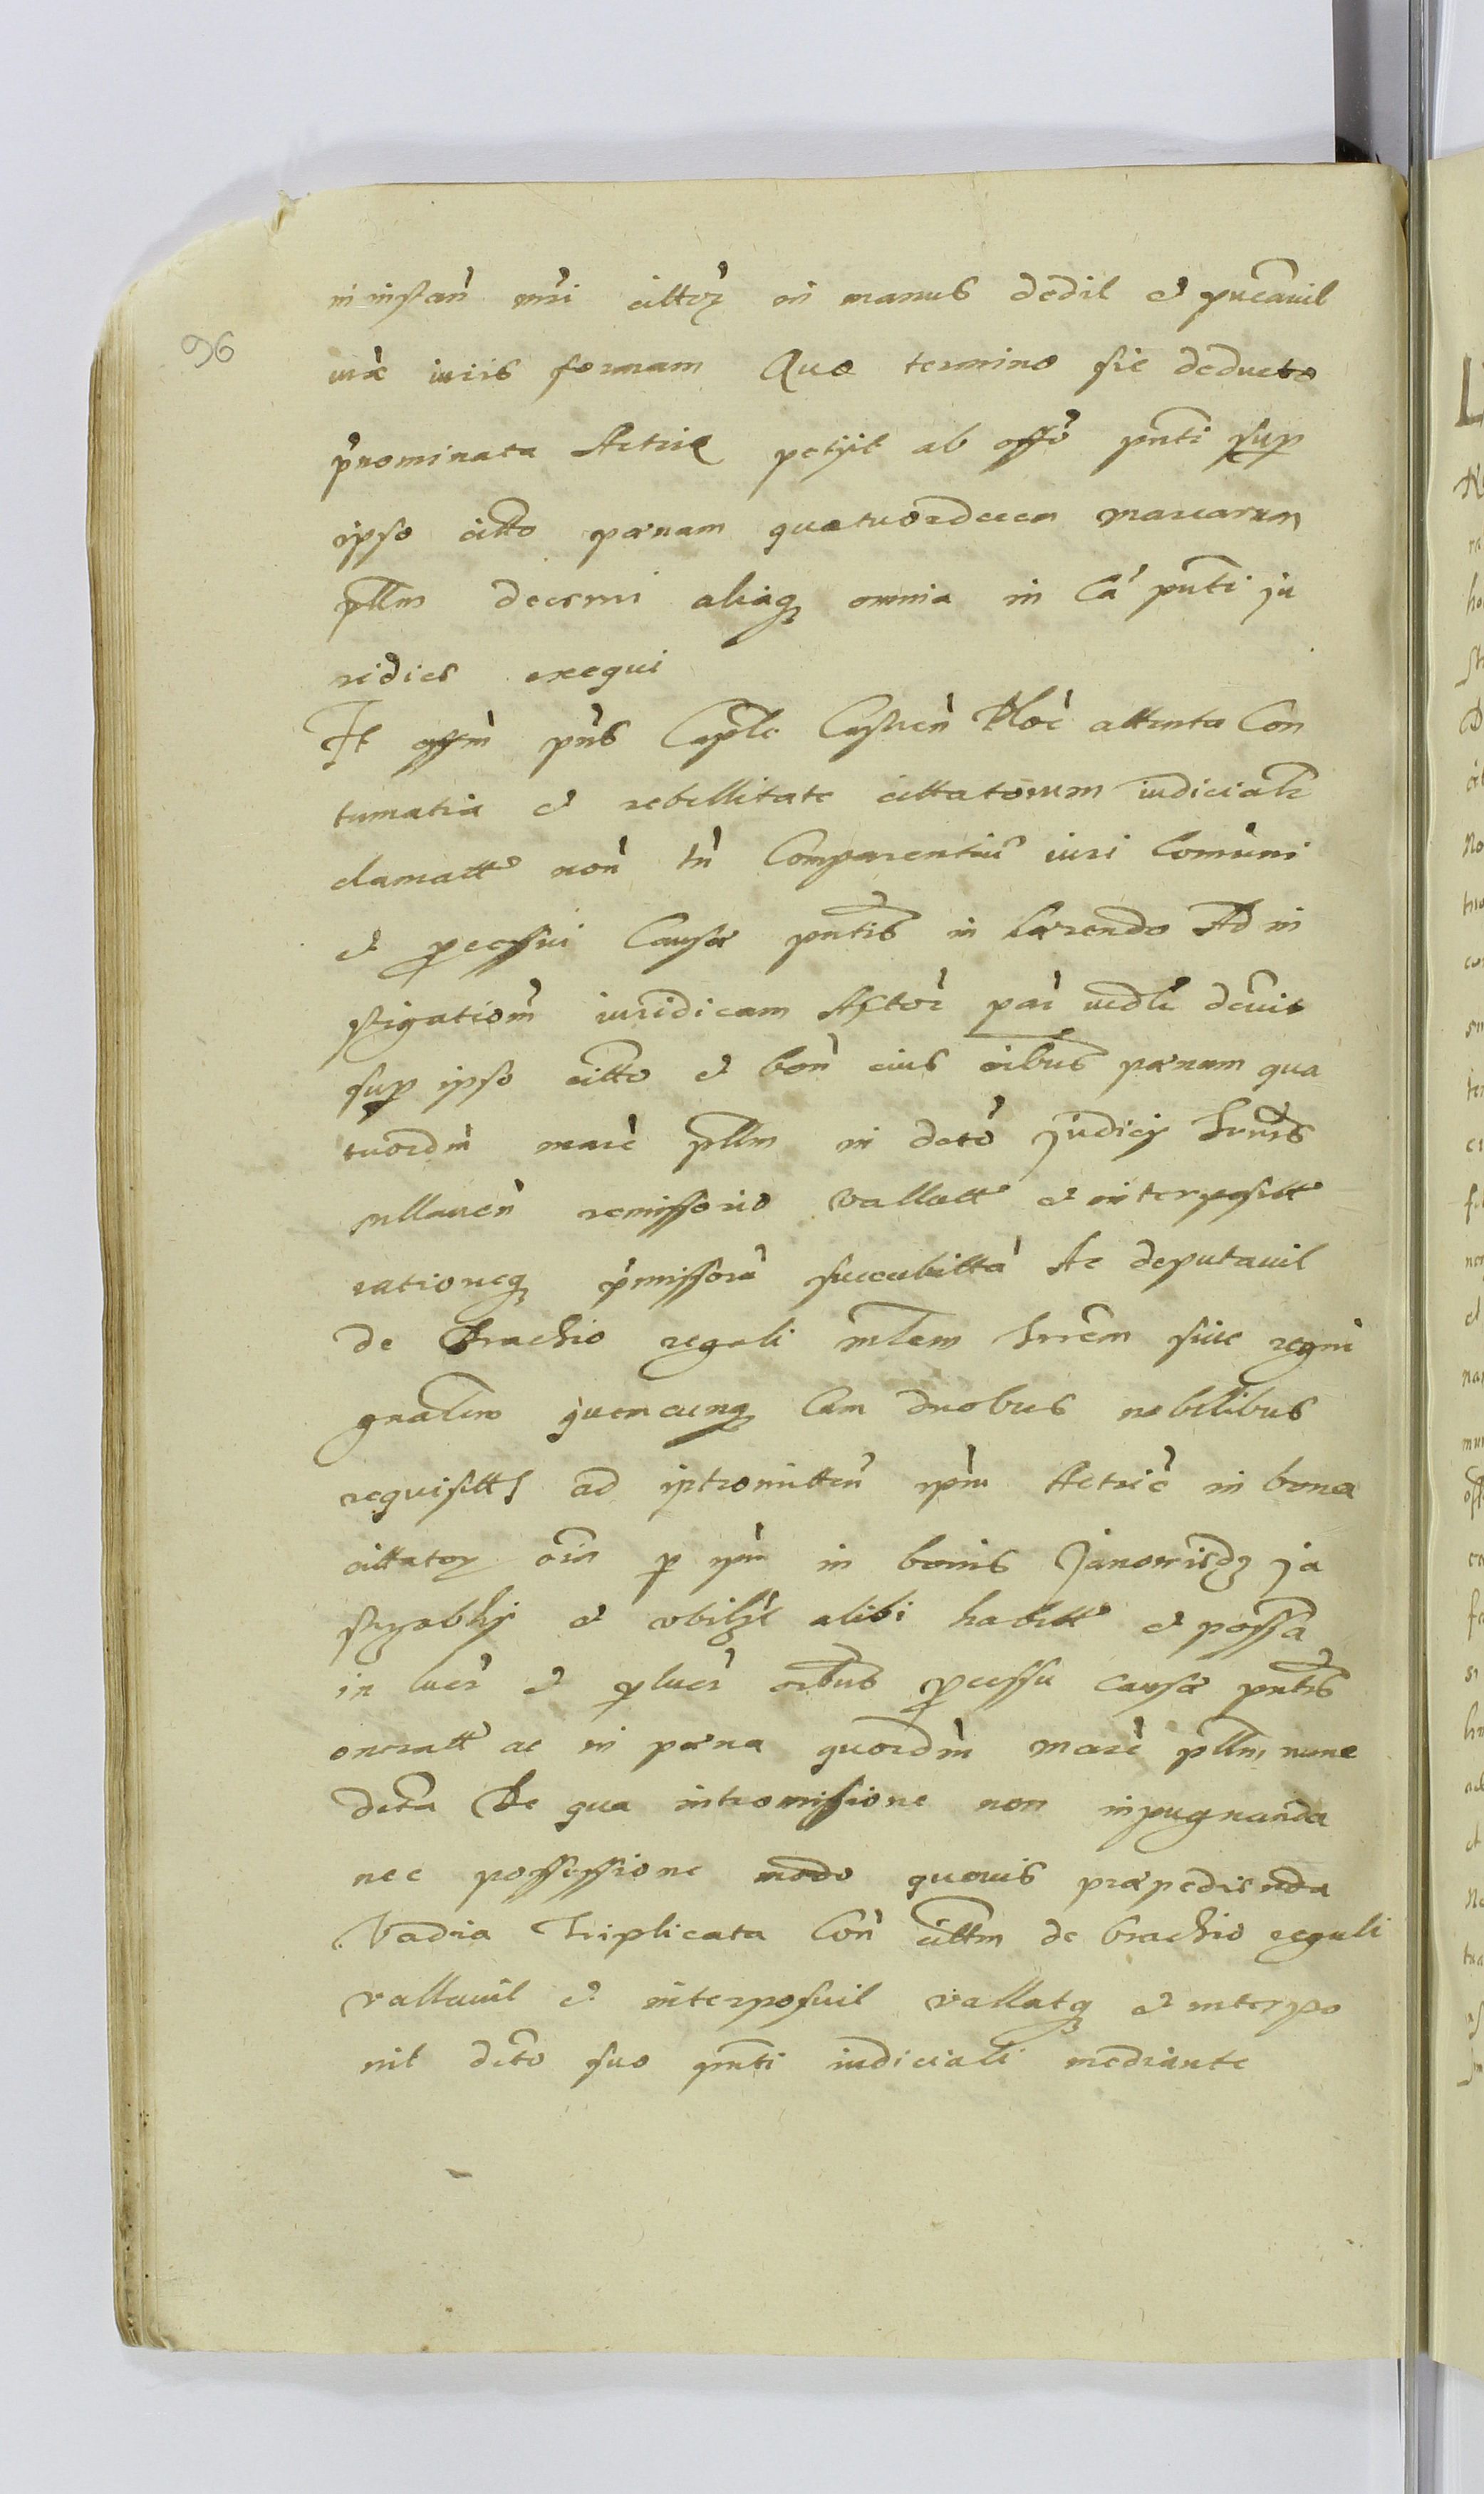 96
in instan mri cittor in manus dedit et pncavit
iux iuris formam Quo termino sic deducto
pnominata Actrix petyit ab offo pnti sup
ipso citto pœnam quatuordecem marcarum
pllm decerni aliaq omnia in Ca pnti ju
ridice exequi
Et offm pns Caple Castren Ploc attenta Con
tumatia et rebellitate cittatorum iudicialr
clamatt non tn Comparentiu iuri Comuni
et pcessui Causæ pntis in hærendo Ad in
stigationm iuridicam Actor par vedle devit
sup ipso citto et bon eius oibus pœnam qua
tuordm marc pllm in dcto judicy
remissorio vallatt et interpositt
rationeq pmissoru succubitta Ac deputavit
de Brachio regali sive regni
gnalem quemcunq Cum duobus nobilibus
requisitt ad intromitten ipm Actric in bona
cittator oia p ipm in bonis Janowiedz Ja
strzabky et vbilzt alibi habitt et possa
in lucr et plucr oibus pcessu causæ pntis
oneratt ac in pœna quordm marc pllm nunc
dcta De qua intromissione non inpugnanda
nec possessione modo quovis præpedienda
Vadia Triplicata Con cittm de brachio regali
vallavit et interposuit vallatq et interpo
nit dcto suo pnti iudiciali mediante